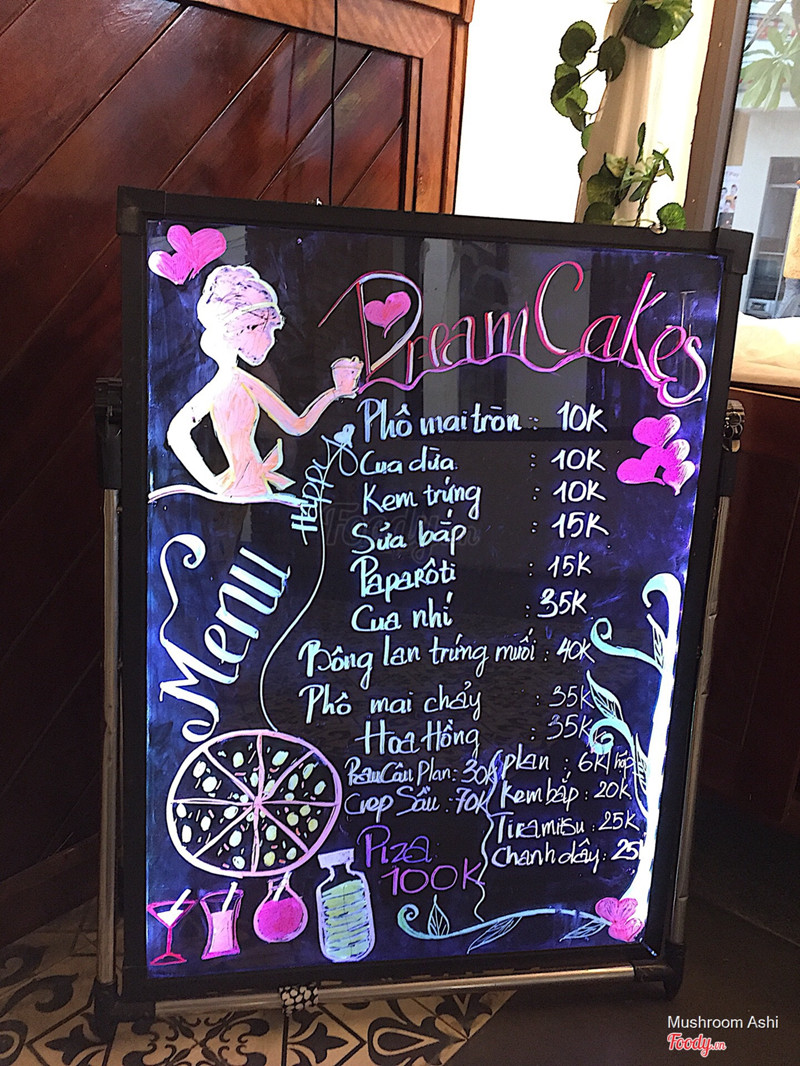 Dream Cakes
Happy
Menu
Phô mai tròn : 10K
Cua dừa : 10K
Kem trứng : 10K
Sữa bắp : 15K
Paparôti : 15K
Cua nhí : 35K
Bông lan trứng muối : 40K
Phô mai chảy : 35K
Hoa Hồng : 35K
Rau Câu Plan : 30K
Crep Sầu : 70K
Piza
100K
plan : 6K/hộp
Kem bắp : 20K
Tiramisu : 25K
Chanh dây : 25K
Foody.vn
Mushroom Ashi
Foody.vn